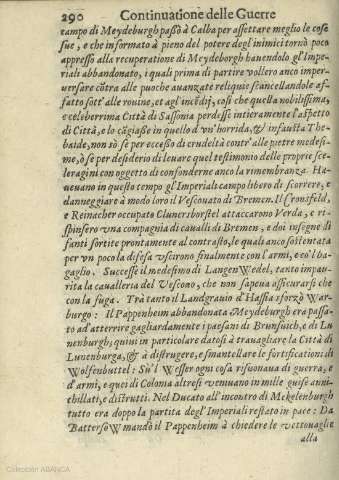 290 Continuatione delle Guerre
campo di Meydeburgh passò à Calba per assettare meglio le cose
sue, e che informato à pieno del potere degl'inimici tornò poco
appresso alla recuperatione di Meydeborgh hauendolo gl'Impe-
riali abbandonato, i quali prima di partire vollero anco imper-
uersare cõtra alle puoche auanzate reliquie scancellandole af-
fatto sott'alle rouine, et agl'incẽdij, così che quella nobilissima,
e celeberrima Città di Sassonia perdesse intieramente l'aspetto
di Città, e lo cãgiasse in quello d'vn'horrida, & infausta The-
baide, non sò se per eccesso di crudeltà contr'alle pietre medesi-
me, ò se per desiderio di leuare quel testimonio delle proprie sce-
leragini con oggetto di confonderne anco la rimembranza. Ha-
ueuano in questo tempo gl'Imperiali campo libero di scorrere, e
danneggiare à modo loro il Vescouato di Bremen. Il Cronsfeld,
e Reinacher occupato Cluncriborstel attaccarono Verda, e ri-
spinsero vna compagnia di caualli di Bremen, e doi insegne di
fanti sortite prontamente al contrasto, le quali anco sostentata
per vn poco la difesa vscirono finalmente con l'armi, e co'l ba-
gaglio. Successe il medesimo di Langen Wedel, tanto impau-
rita la caualleria del Vescouo, che non sapeua assicurarsi che
con la fuga. Trà tanto il Landgrauio d'Hassia sforzò War-
burgo: Il Pappenheim abbandonata Meydeburgh era passa-
to ad atterrire gagliardamente i paesani di Brunsuich, e di Lu-
nenburgh; quini in particolare datosi à trauagliare la Città di
Lunenburga, & à distrugere, e smantellare le fortificationi di
Wolfenbuttel: Sù'l Wesser ogni cosa risuonaua di guerra, e
d'armi, e quei di Colonia altresì veniuano in mille guise anni-
chillati, e distrutti. Nel Ducato all'incontro di Mekelenburgh
tutto era doppo la partita degl'Imperiali restato in pace: Da
Batterso Wmandò il Pappenheim à chiedere le vettouaglie
alla
Colección ABANCA